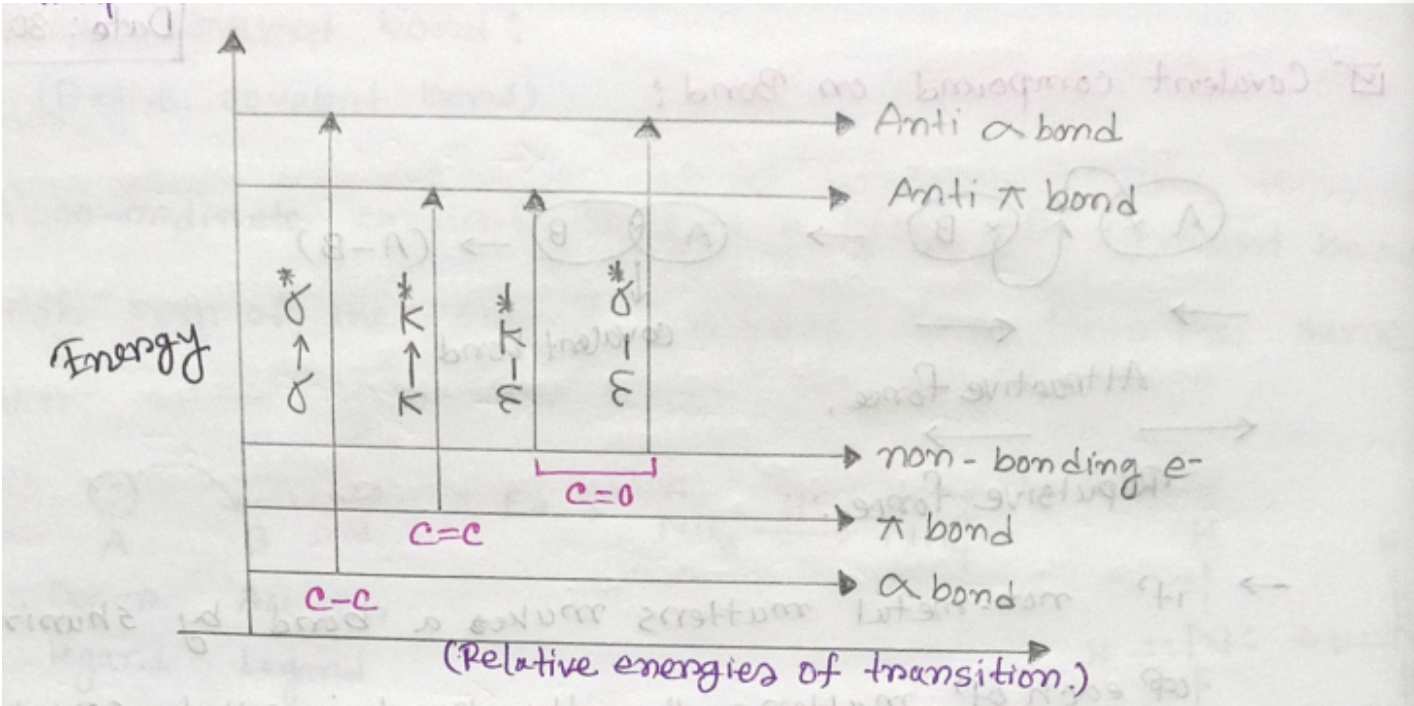 Anti α bond
Anti π bond
σ → σ*
π → π*
n – π*
n – σ*
Energy
non-bonding e-
C=O
π bond
C=C
α bond
C-C
(Relative energies of transition.)